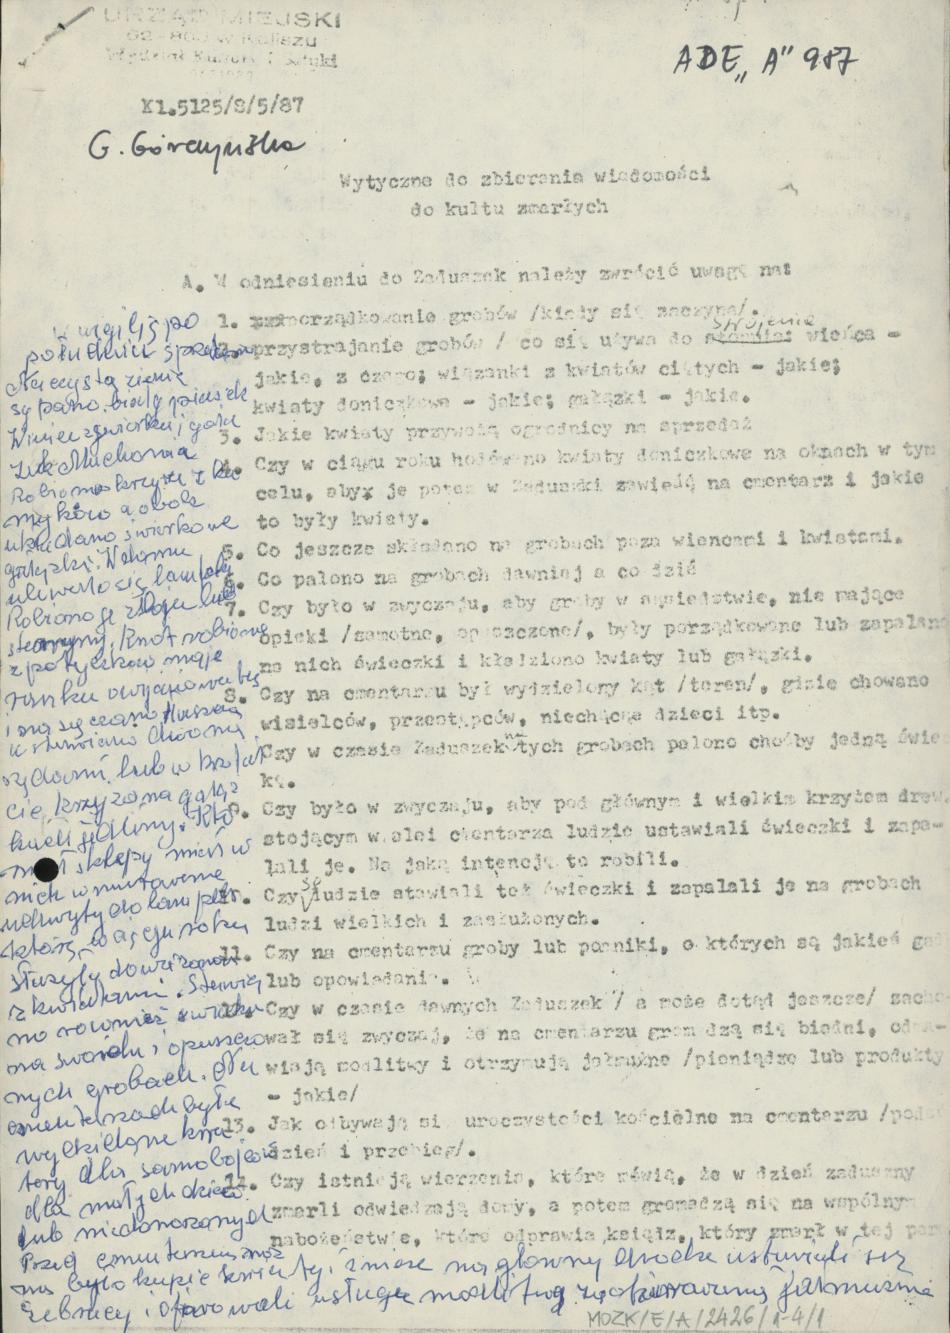 URZĄD MIEJSKI
62-800 w Kaliszu
Wydział Kultury i Sztuki
ADE „A” 987
Kl.5125/8/5/87
G. Górczyńska
Wytyczne do zbierania wiadomości
do kultu zmarłych
A. W odniesieniu do Zaduszek należy zwrócić uwagę na:
1. uporządkowanie grobów /kiedy się zaczyna/.
strojenia
2. przystrajanie grobów / co się używa do wieńca -
jakie, z czego; wiązanki z kwiatów ciętych - jakie;
kwiaty doniczkowe - jakie; gałązki - jakie.
3. Jakie kwiaty przywożą ogrodnicy na sprzedaż
4. Czy w ciągu roku hodowano kwiaty doniczkowe na oknach w tym
celu, aby je potem w Zaduszki zawieźć na cmentarz i jakie
to były kwiaty.
5. Co jeszcze składano na grobach poza wieńcami i kwiatami.
6. Co palono na grobach dawniej a co dziś
7. Czy było w zwyczaju, aby groby w sąsiedztwie, nie mające
opieki /samotne, opuszczone/, były porządkowane lub zapalano
na nich świeczki i kładziono kwiaty lub gałązki.
8. Czy na cmentarzu był wydzielony kąt /teren/, gdzie chowano
wisielców, przestępców, niechciane dzieci itp.
Czy w czasie Zaduszek na tych grobach palono choćby jedną świe
kę.
9. Czy było w zwyczaju, aby pod głównym i wielkim krzyżem drew.
stojącym w alei cmentarza ludzie ustawiali świeczki i zapa-
lali je. Na jaką intencję to robili.
10. Czy ludzie stawiali też świeczki i zapalali je na grobach
ludzi wielkich i zasłużonych.
11. Czy na cmentarzu groby lub pomniki, o których są jakieś
lub opowiadania.
12. Czy w czasie dawnych Zaduszek / a może dotąd jeszcze/ zacho
wał się zwyczaj, że na cmentarzu gromadzą się biedni, odma-
wiają modlitwy i otrzymują jałmużnę /pieniądze lub produkty
- jakie/
13. Jak odbywają się uroczystości kościelne na cmentarzu /podać
dzień i przebieg/.
14. Czy istnieją wierzenia, które mówią, że w dzień zaduszny
zmarli odwiedzają domy, a potem gromadzą się na wspólnym
nabożeństwie, które odprawia ksiądz, który zmarł w tej par
W wigilję po
południu
Na czystą ziemię
sypano biały piasek
Wieniec z świerku i
Robiono krzyże z
a obok
układano świerkowe
gałązki. W domu
się lampki
Robiono je z łoju lub
stearyny, Knot robiono
i ustawiano
lub w
cie, krzyżo na gałąz
kach jedliny. Kto
miał sklepy miał w
nich wmurowane
uchwyty do lamp
które w ciągu roku
służyły do wiązanek
z kwiatami. Stawia
no również świeczki
na swoich i opuszczo
nych grobach. Na
cmentarzach były
wydzielone kwa
tery dla samobójców
dla małych dzieci
lub niedonoszonych
Przed cmentarzem moż
na było kupić kwiaty i znicze na głównej drodze ustawiali się
żebracy i ofiarowali usługę modlitwą za jałmużnę
MOZK/E/A/2426/1-4/1